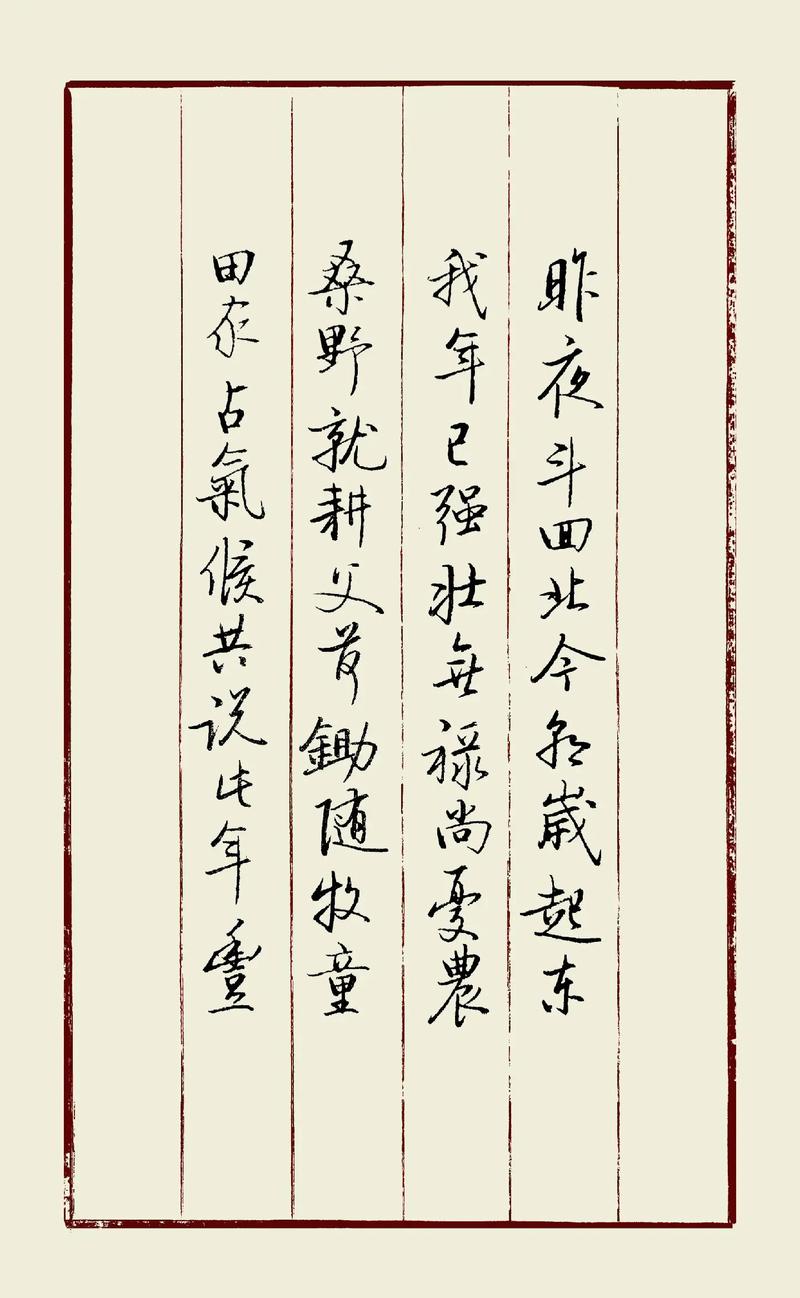 昨夜斗回北今朝歲起东
我年已强壮無禄尚憂農
桑野就耕父荷鋤随牧童
田家占氣候共说此年豐